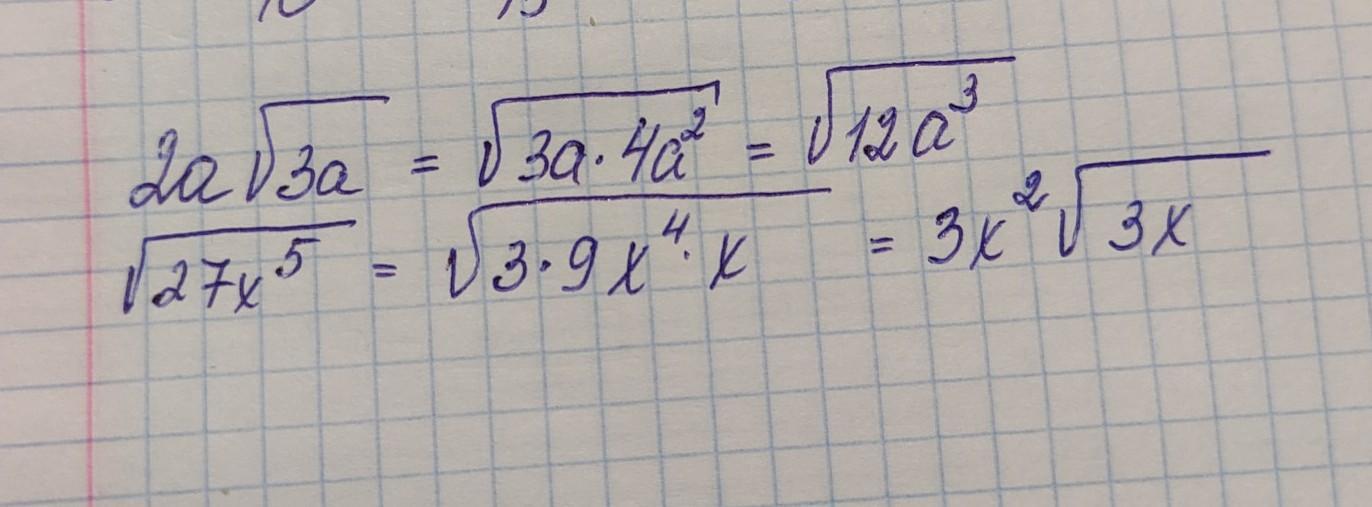 2a√3a = √3a·4a² = √12a³
√27x⁵ = √3·9x⁴·x = 3x²√3x